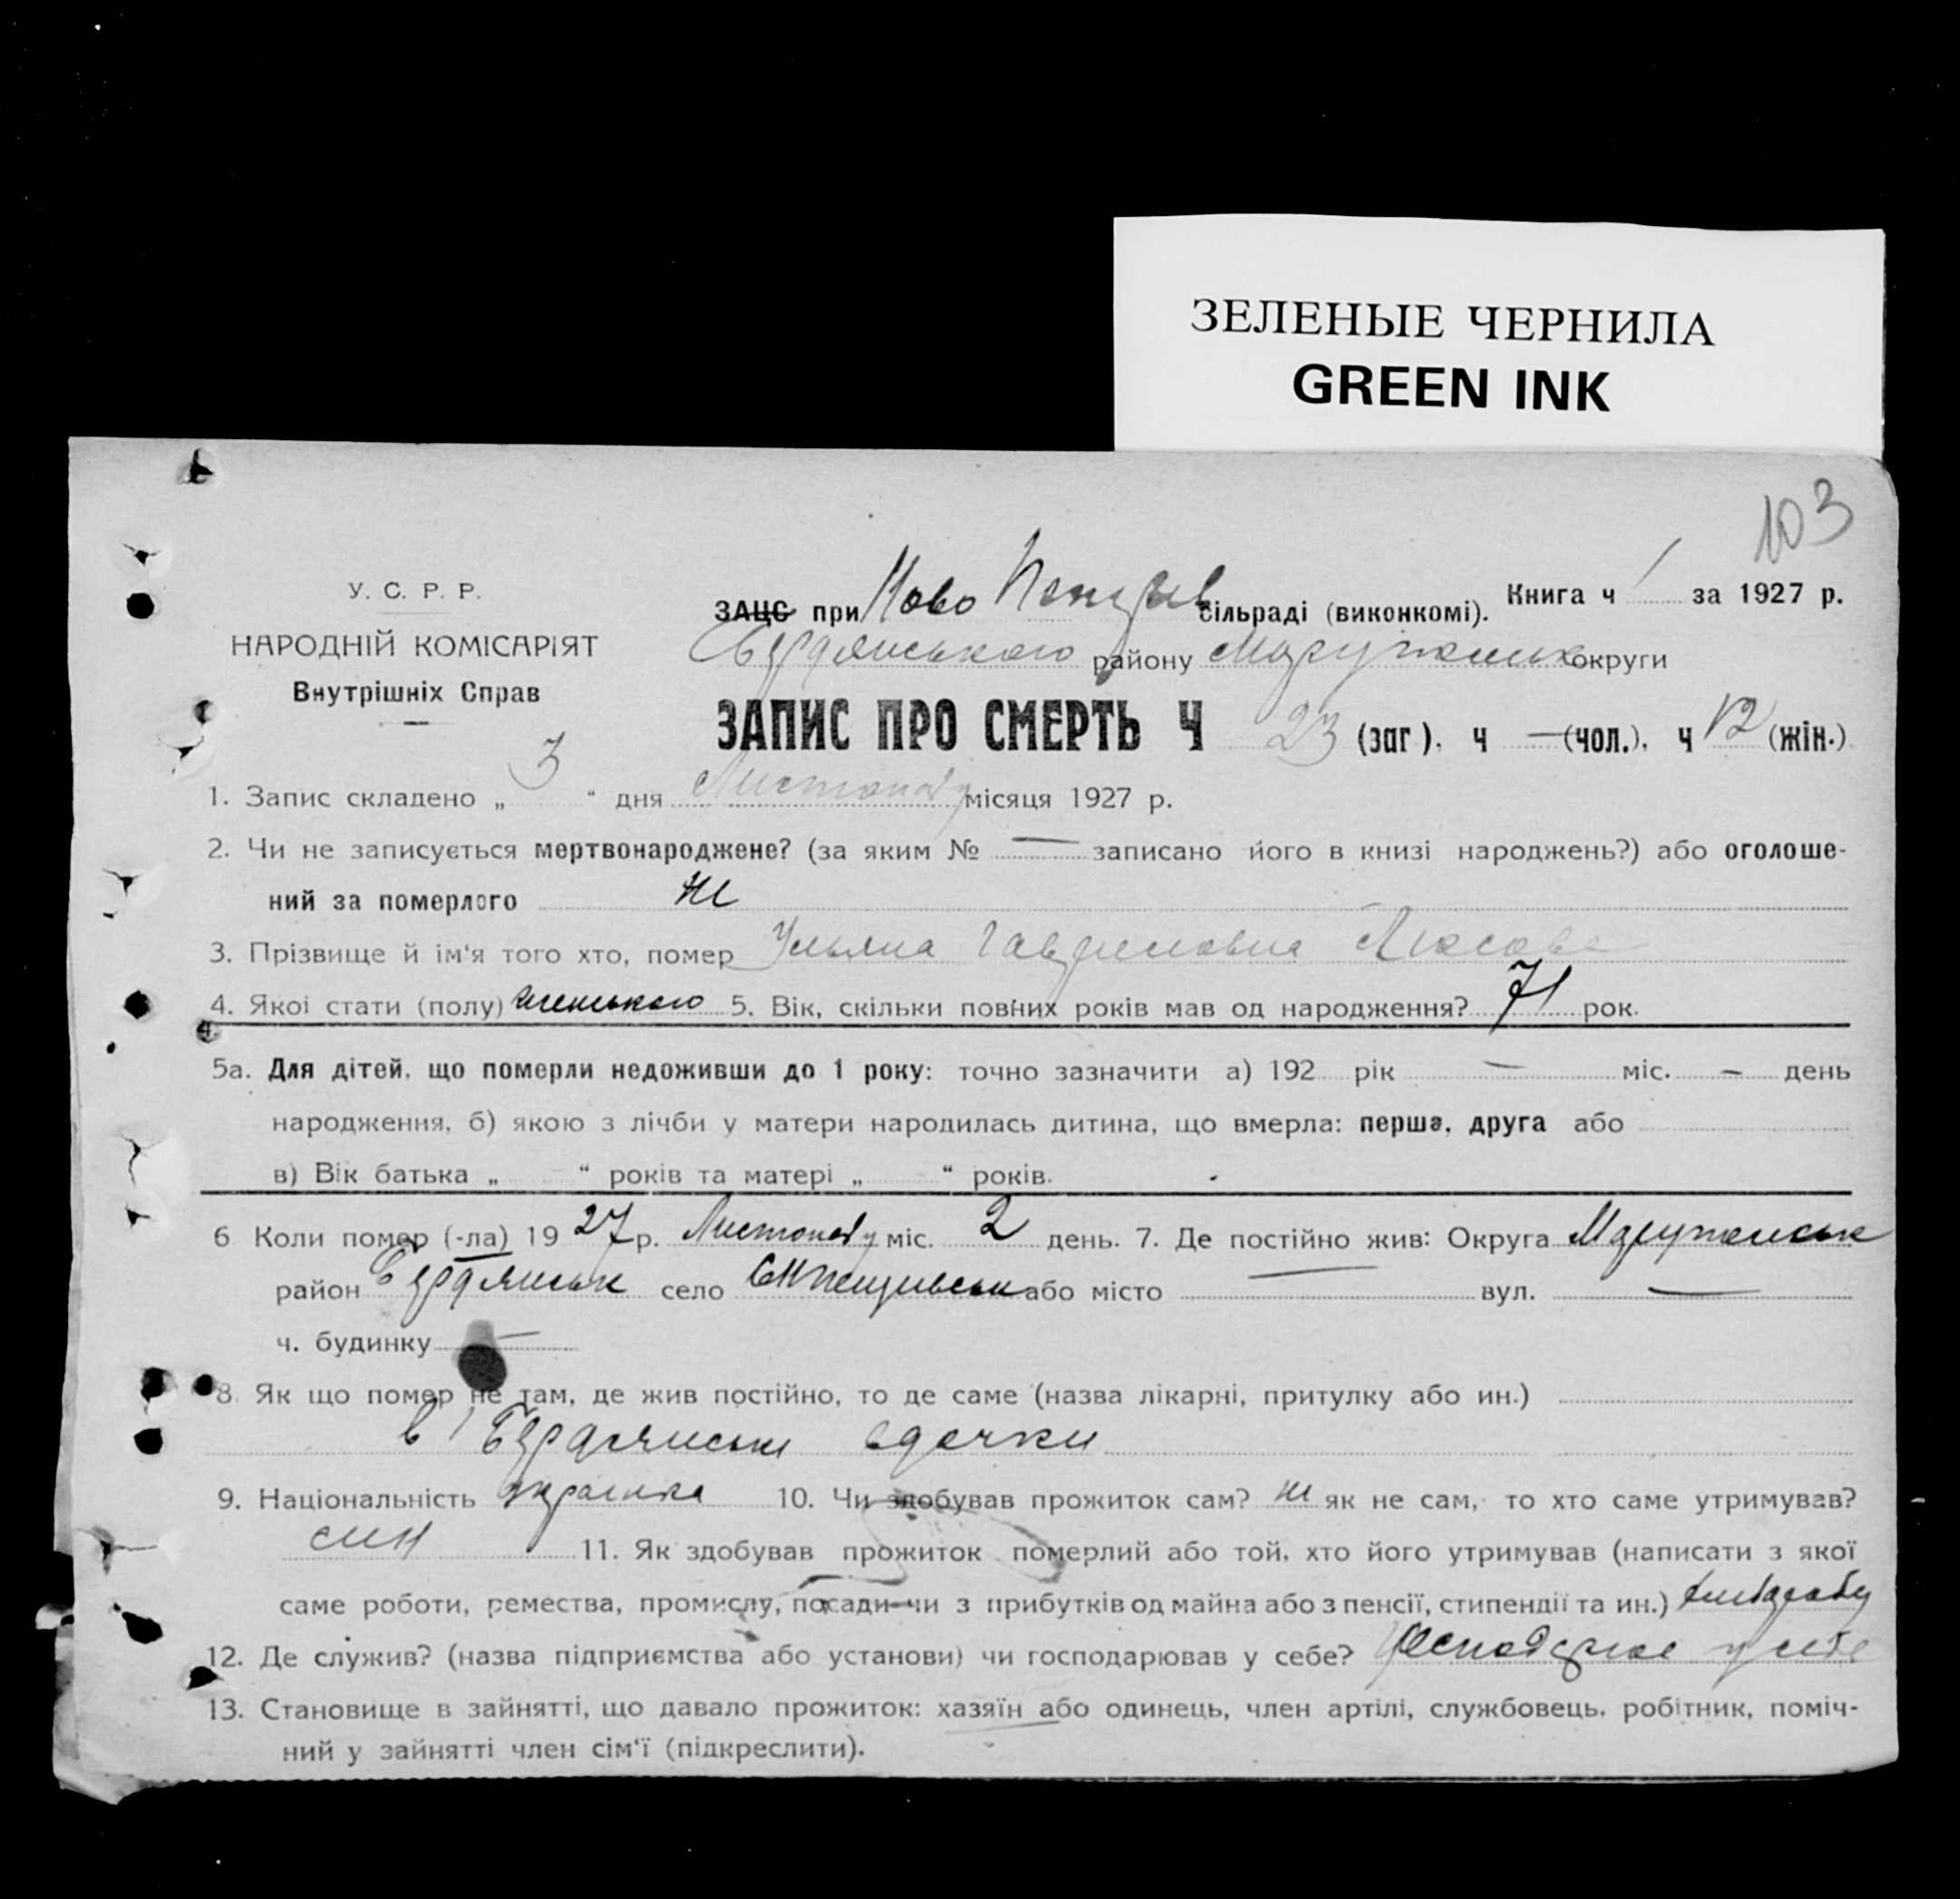 ЗЕЛЕНЫЕ ЧЕРНИЛА
GREEN INK
103
У. С. Р. Р.
НАРОДНІЙ КОМІСАРІЯТ
Внутрішніх Справ
ЗАЦС при Ново сільраді (виконкомі). Книга ч 1 за 1927 р.
Бердянського району округи
ЗАПИС ПРО СМЕРТЬ Ч 23 (заг). ч — (чол.), ч 12 (жін.)
1. Запис складено „ 3 “ дня Листопаду місяця 1927 р.
2. Чи не записується мертвонароджене? (за яким № — записано його в книзі народжень?) або оголоше-
ний за померлого Ні
3. Прізвище й ім'я того хто, помер Ульяна Гавриловна
4. Якої стати (полу) женського 5. Вік, скільки повних років мав од народження? 71 рок.
5а. Для дітей, що померли недоживши до 1 року: точно зазначити а) 192 рік — міс. — день
народження, б) якою з лічби у матери народилась дитина, що вмерла: перша, друга або
в) Вік батька „ “ років та матері „ “ років.
6 Коли помер (-ла) 1927 р. Листопаду міс. 2 день. 7. Де постійно жив: Округа
район Бердянськ село або місто — вул. —
ч. будинку —
8. Як що помер не там, де жив постійно, то де саме (назва лікарні, притулку або ин.)
в Бердянськи вдочки
9. Національність 10. Чи здобував прожиток сам? Ні як не сам, то хто саме утримував?
син 11. Як здобував прожиток померлий або той, хто його утримував (написати з якої
саме роботи, ремества, промислу, посади чи з прибутків од майна або з пенсії, стипендії та ин.)
12. Де служив? (назва підприємства або установи) чи господарював у себе? у себе
13. Становище в зайнятті, що давало прожиток: хазяїн або одинець, член артілі, службовець, робітник, поміч-
ний у зайнятті член сім'ї (підкреслити).